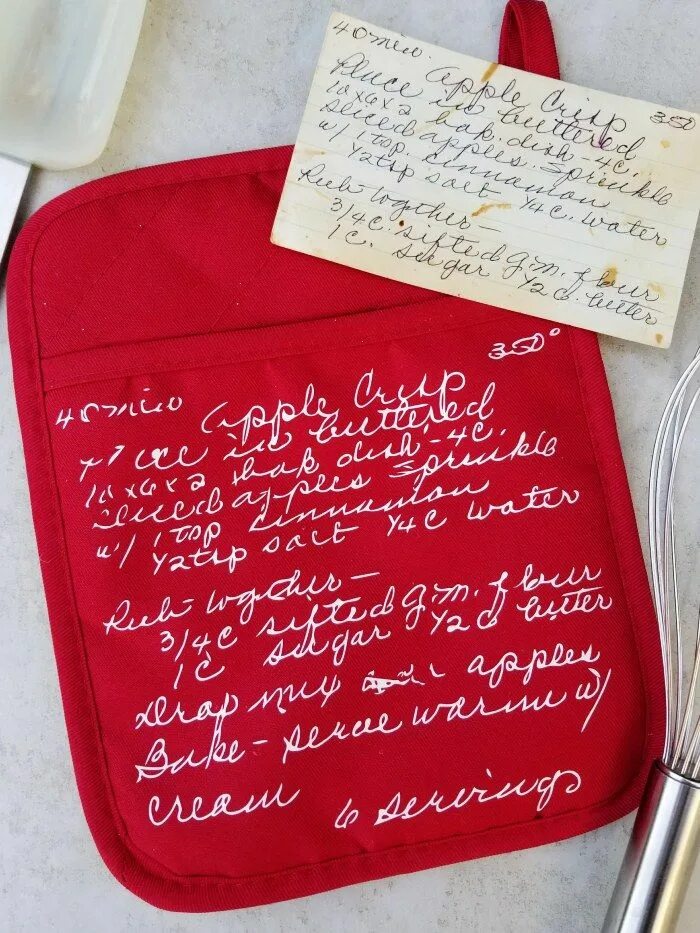 40 min.
Apple Crisp
350
Place in buttered
10x6x2 bak. dish - 4c.
sliced apples. Sprinkle
w/ 1 tsp. cinnamon
1/2 tsp salt 1/4 c. water
Rub together -
3/4 c. sifted g.m. flour
1 c. sugar 1/2 c butter
350°
40 min
Apple Crisp
Place in buttered
10x6x2 bak dish - 4c.
sliced apples Sprinkle
w/ 1 tsp cinnamon
1/2 tsp salt 1/4 c water
Rub together -
3/4 c sifted g.m. flour
1 c sugar 1/2 c butter
Drop mix apples
Bake - serve warm w/
cream
6 servings